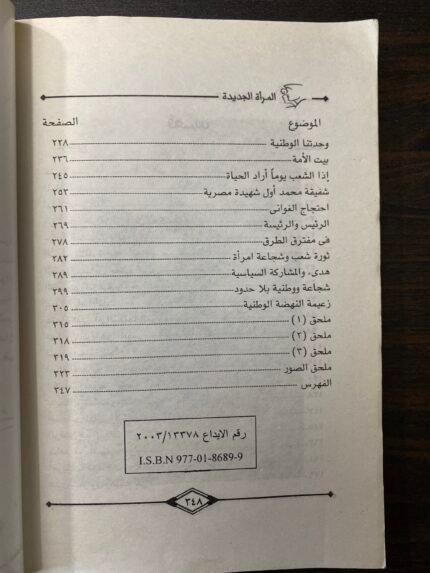 المرأة الجديدة
الموضوع الصفحة
وحدتنا الوطنية ٢٢٨
بيت الأمة ٢٣٦
إذا الشعب يوماً أراد الحياة ٢٤٥
شفيقة محمد أول شهيدة مصرية ٢٥٣
احتجاج الغوانى ٢٦١
الرئيس والرئيسة ٢٦٩
فى مفترق الطرق ٢٧٨
ثورة شعب وشجاعة امرأة ٢٨٢
هدى، والمشاركة السياسية ٢٨٩
شجاعة ووطنية بلا حدود ٢٩٩
زعيمة النهضة الوطنية ٣٠٥
ملحق (١) ٣١٥
ملحق (٢) ٣١٨
ملحق (٣) ٣١٩
ملحق الصور ٣٢٣
الفهرس ٣٤٧
رقم الايداع ٢٠٠٣/١٣٣٧٨
I.S.B.N 977-01-8689-9
٣٤٨